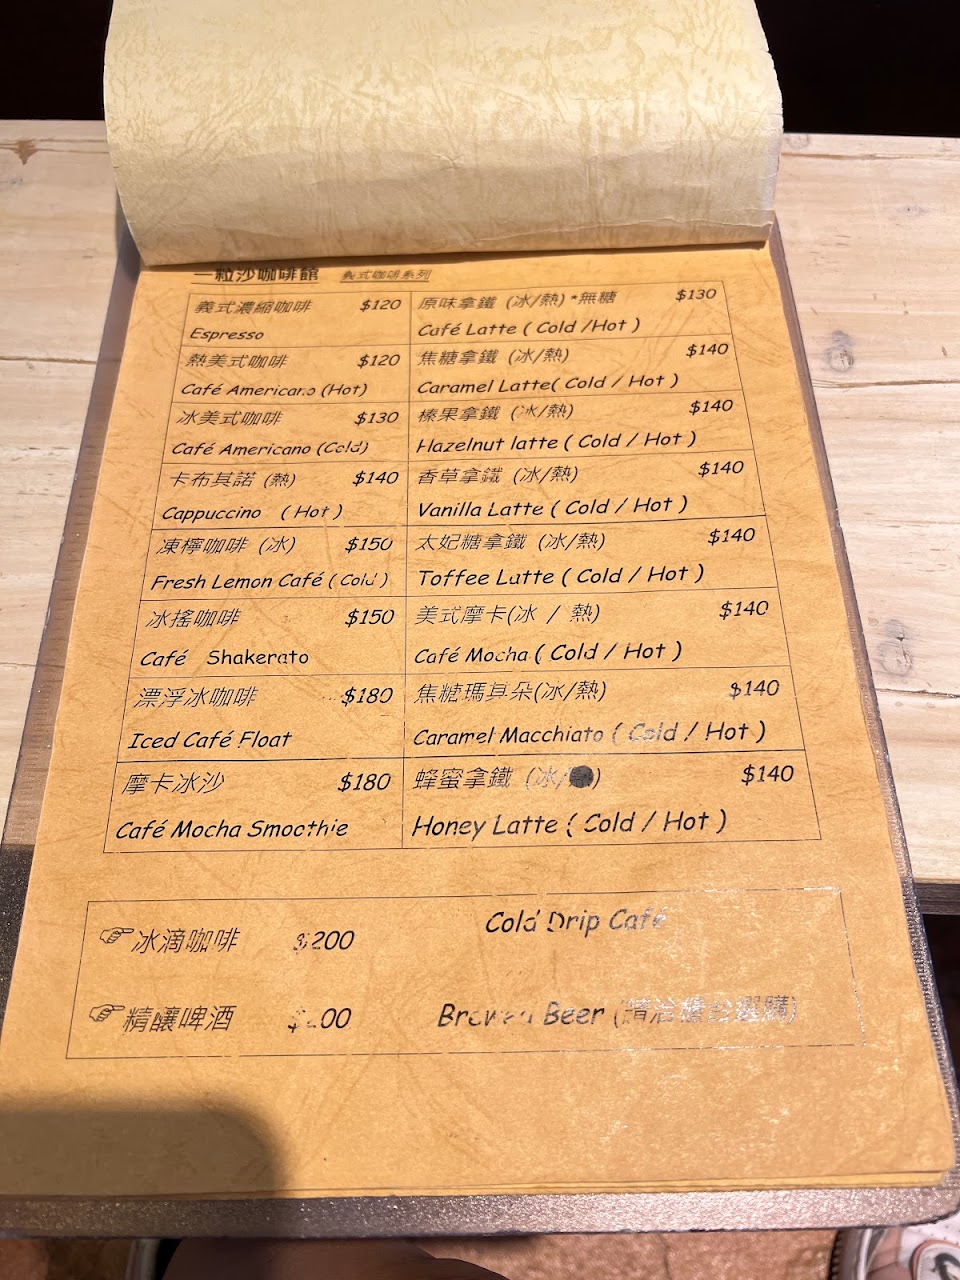 一粒沙咖啡館 義式咖啡系列
義式濃縮咖啡 $120
Espresso
熱美式咖啡 $120
Café Americano (Hot)
冰美式咖啡 $130
Café Americano (Cold)
卡布其諾 (熱) $140
Cappuccino ( Hot )
凍檸咖啡 (冰) $150
Fresh Lemon Café ( Cold )
冰搖咖啡 $150
Café Shakerato
漂浮冰咖啡 $180
Iced Café Float
摩卡冰沙 $180
Café Mocha Smoothie
原味拿鐵 (冰/熱) *無糖 $130
Café Latte ( Cold /Hot )
焦糖拿鐵 (冰/熱) $140
Caramel Latte( Cold / Hot )
榛果拿鐵 (冰/熱) $140
Hazelnut latte ( Cold / Hot )
香草拿鐵 (冰/熱) $140
Vanilla Latte ( Cold / Hot )
太妃糖拿鐵 (冰/熱) $140
Toffee Latte ( Cold / Hot )
美式摩卡(冰 / 熱) $140
Café Mocha ( Cold / Hot )
焦糖瑪其朵(冰/熱) $140
Caramel Macchiato ( Cold / Hot )
蜂蜜拿鐵 (冰/ ) $140
Honey Latte ( Cold / Hot )
☞冰滴咖啡 $200 Cold Drip Café
☞精釀啤酒 Brewed Beer (請洽櫃台選購)